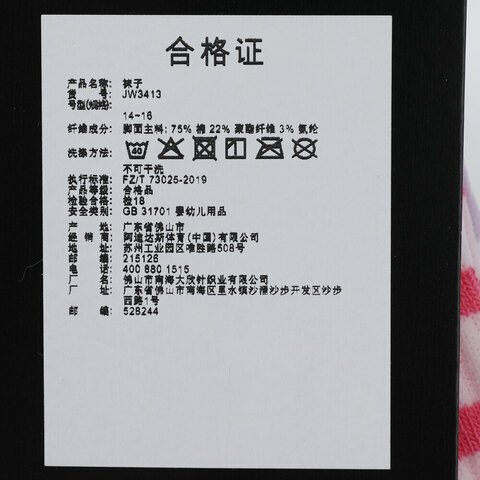 合格证
产品名称: 袜子
货 号: JW3413
号型(规格):
14~16
纤维成分: 脚面主料: 75% 棉 22% 聚酯纤维 3% 氨纶
洗涤方法: 40
不可干洗
执行标准: FZ/T 73025-2019
产品等级: 合格品
检验合格: 检18
安全类别: GB 31701 婴幼儿用品
产 地: 广东省佛山市
经 销 商: 阿迪达斯体育(中国)有限公司
地 址: 苏州工业园区唯胜路508号
邮 编: 215126
电 话: 400 880 1515
厂 名: 佛山市南海大欣针织业有限公司
厂 址: 广东省佛山市南海区里水镇沙涌沙步开发区沙步
西路1号
邮 编: 528244